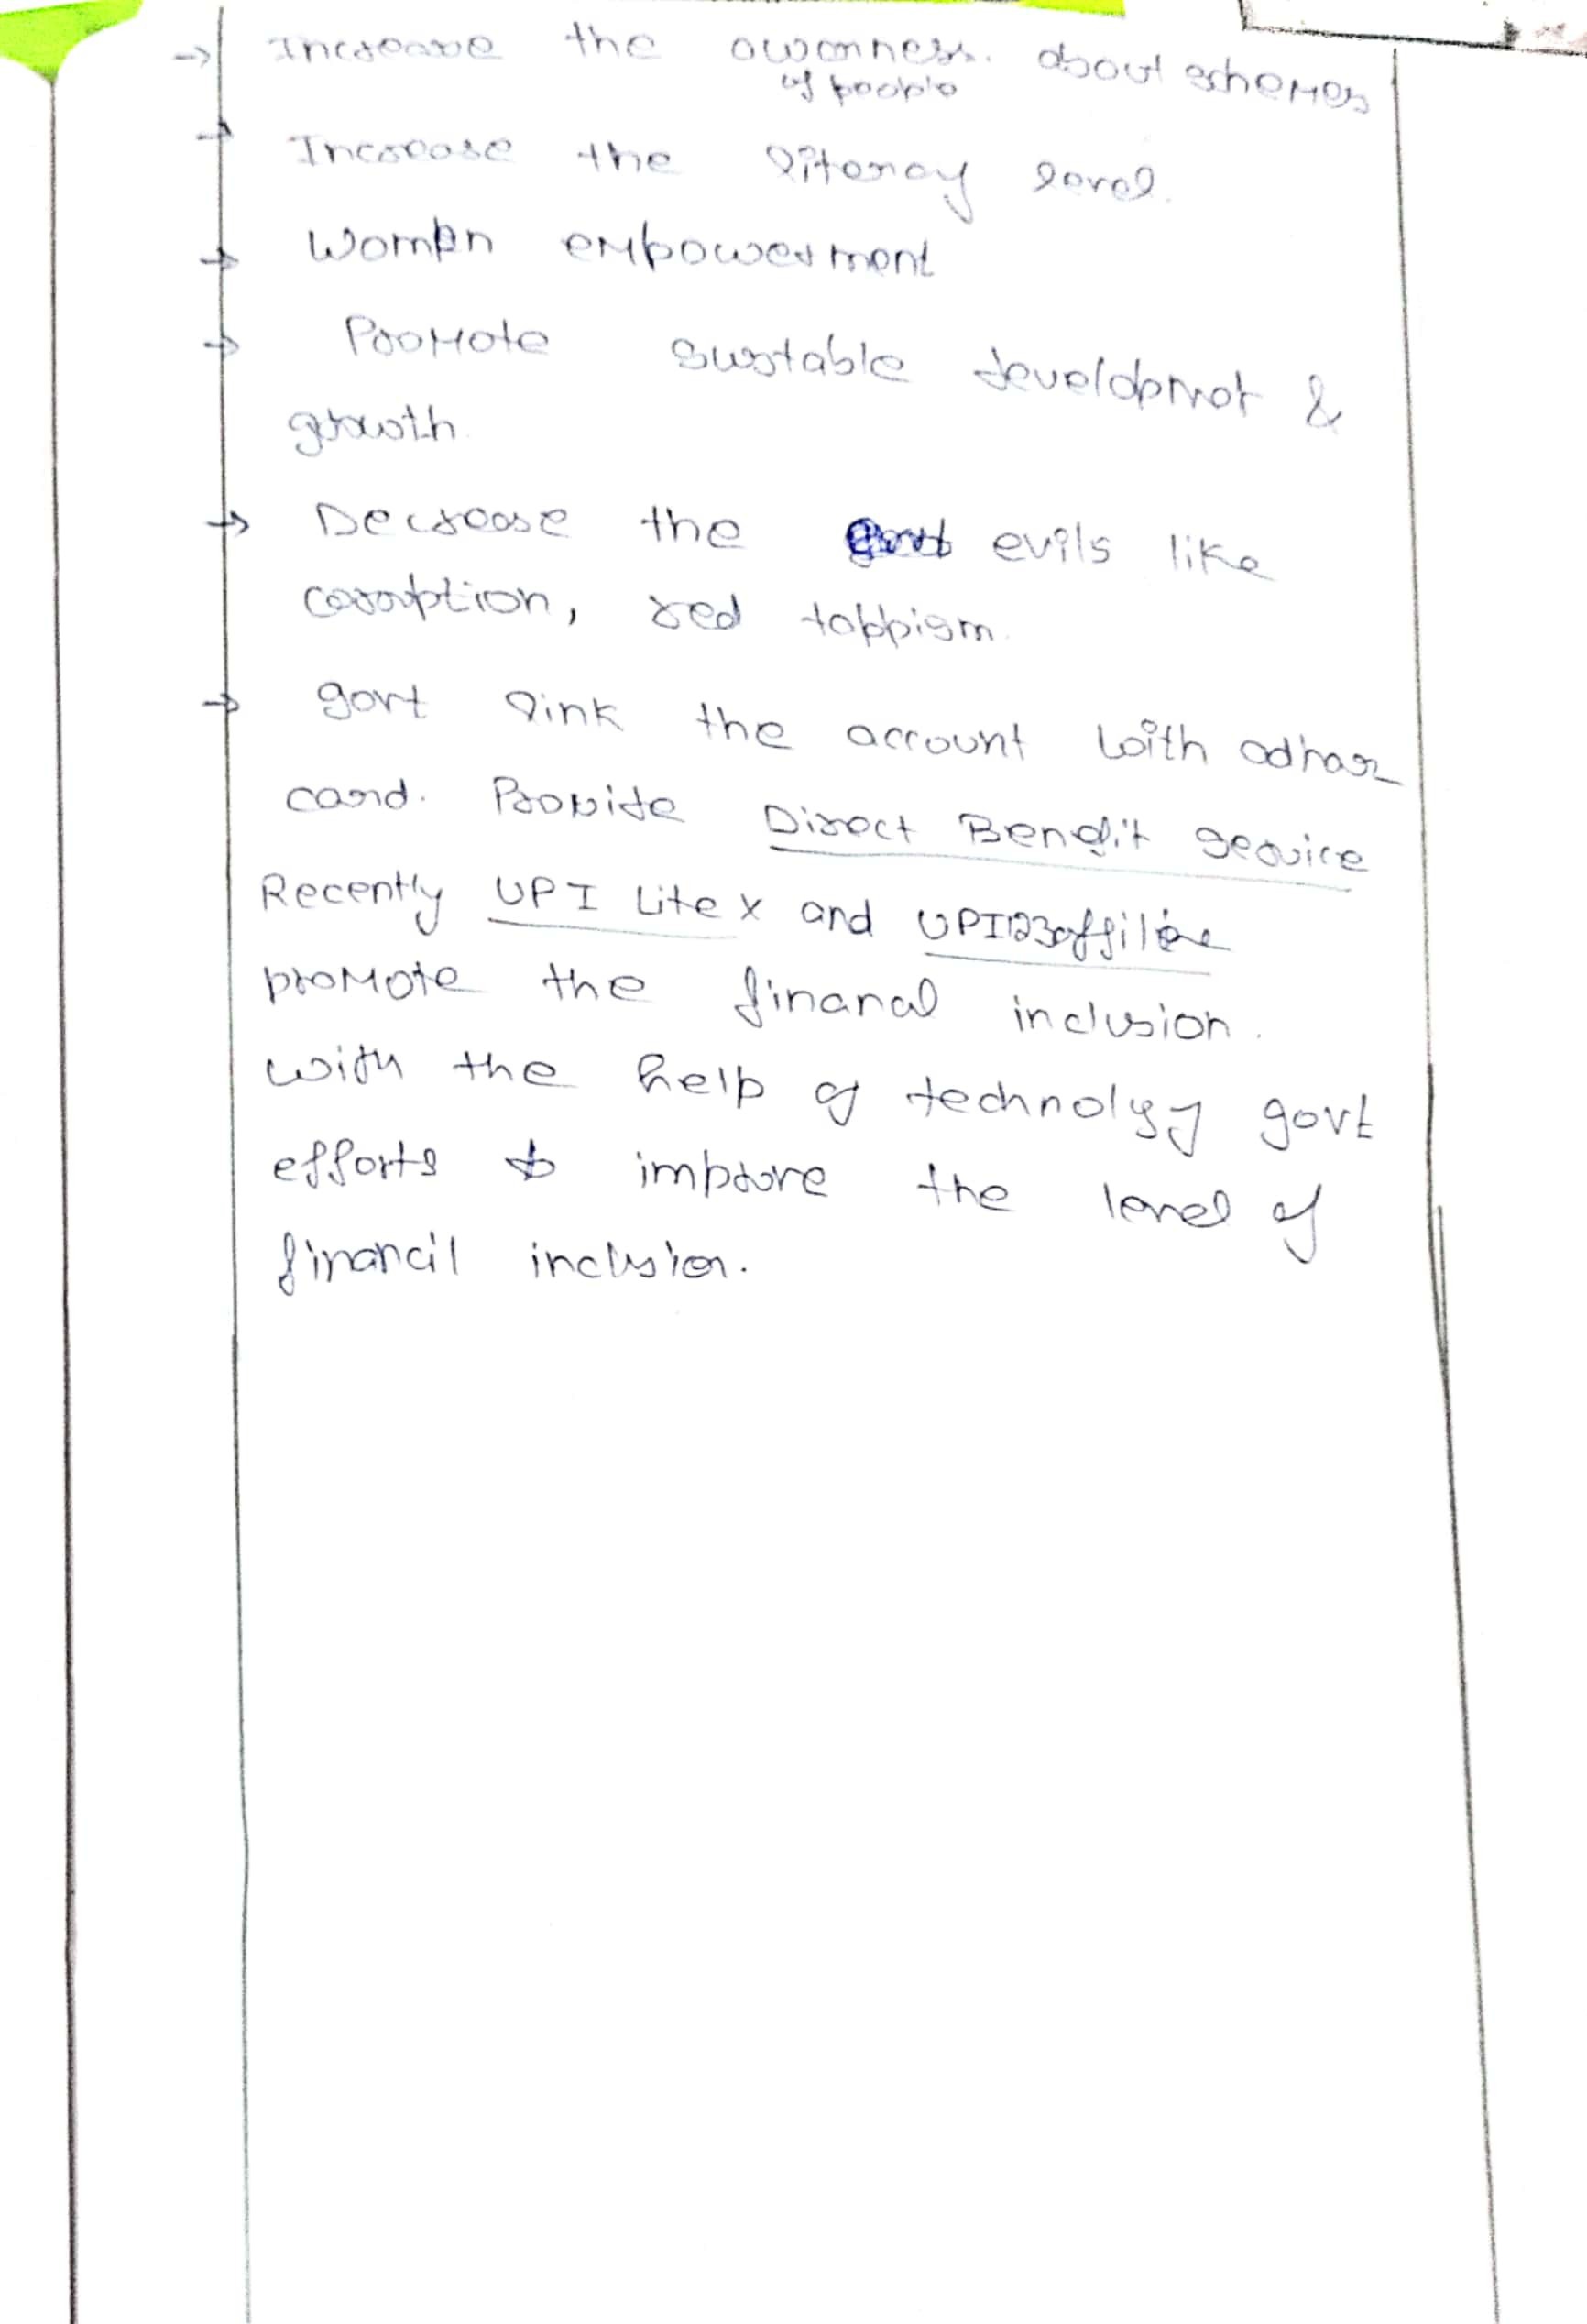 → Increase the awarness. about schemes
of people
→ Increase the literacy level.
→ Women empowerment
→ Promote sustable development &
growth.
→ Decrease the evils like
corruption, red tappism.
→ govt link the account with adhar
card. Provide Direct Benefit service
Recently UPI Lite X and UPI123offiline
promote the finanal inclusion.
with the help of technology govt
efforts to improve the level of
financil inclusion.